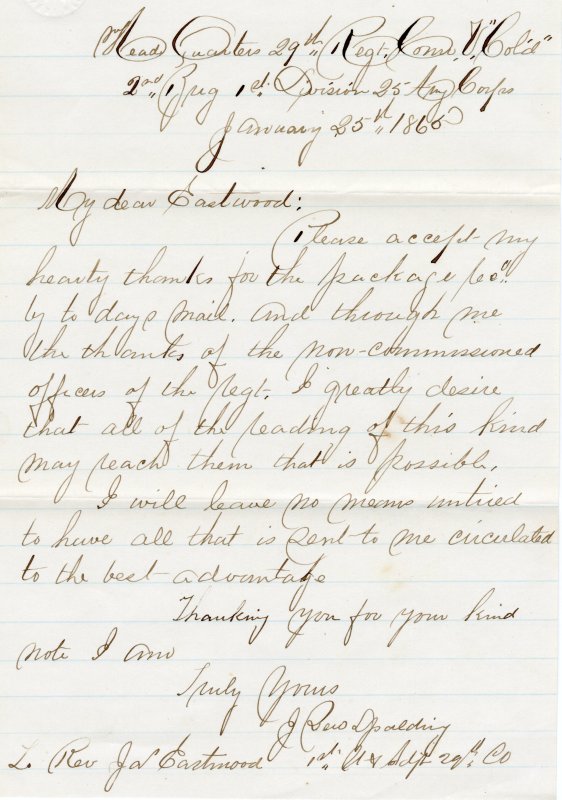 Head Quarters 29th Regt. Conn. V. "Col'd"
2nd Brig 1st Division 25 Army Corps
January 25th 1865
My dear Eastwood:
Please accept my
hearty thanks for the package rec'd
by to days mail. and through me
the thanks of the non-commissioned
officers of the regt. I greatly desire
that all of the reading of this kind
may reach them that is possible.
I will leave no means untired
to have all that is sent to me circulated
to the best advantage
Thanking you for your kind
note I am
Truly Yours
J Spalding
Rev Eastwood 1st Lt & Adjt 29th Co